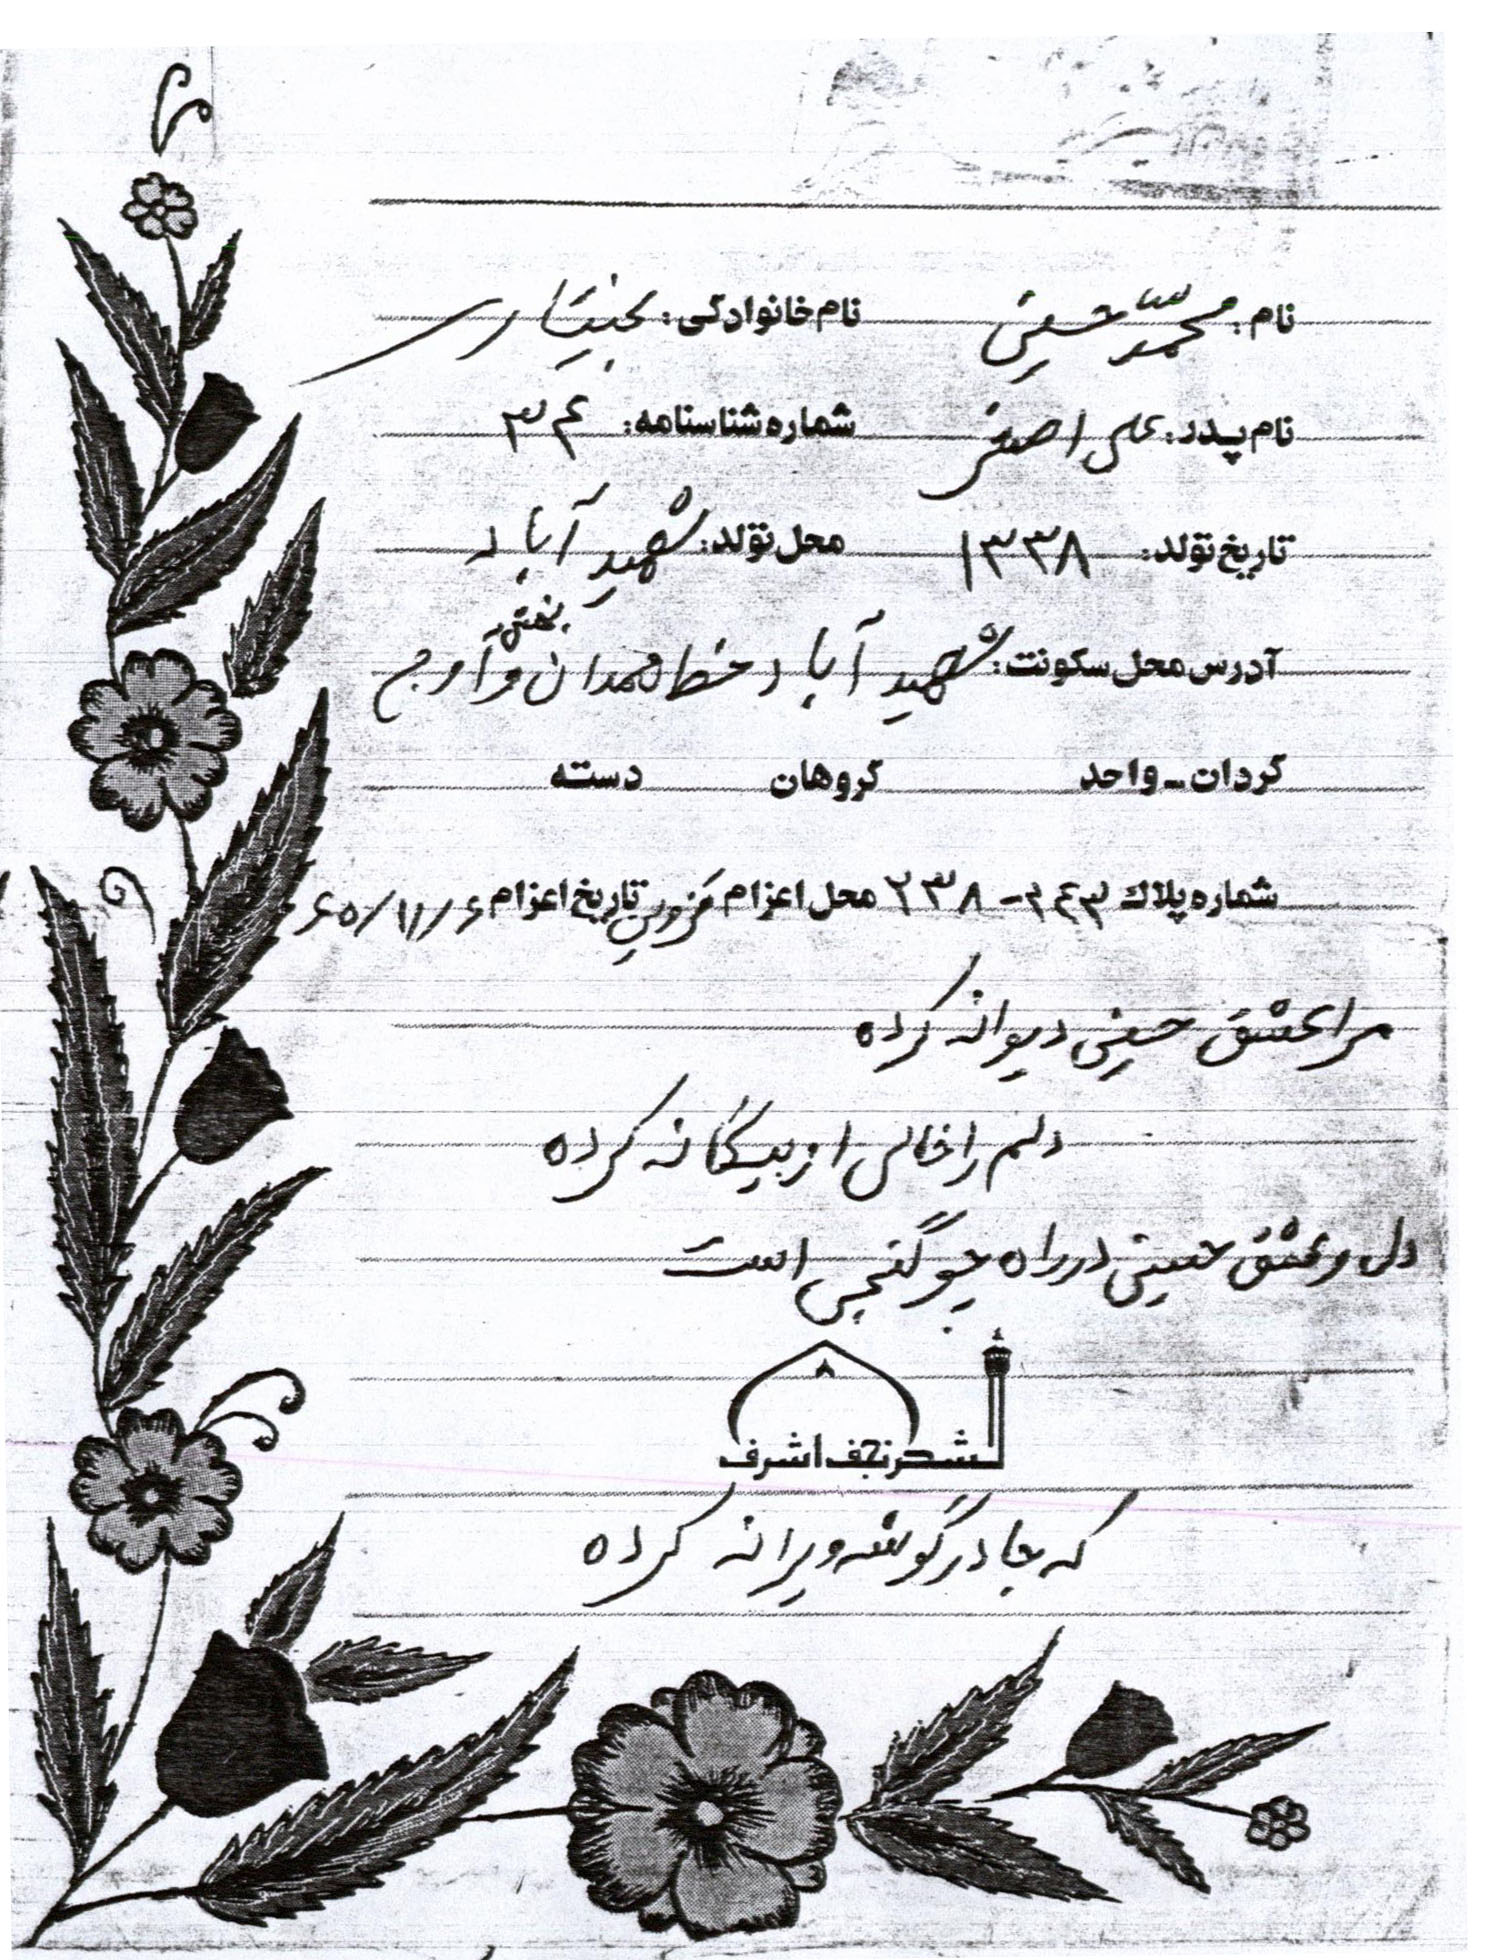 نام: محمد حسین نام خانوادگی: بختیاری
نام پدر: علی اصغر شماره شناسنامه: ۳۴
تاریخ تولد: ۱۳۳۸ محل تولد: شهید آباد
آدرس محل سکونت: شهید آباد خط همدان و آوج
گردان - واحد گروهان دسته
شماره پلاك ۲۴۳ - ۲۳۸ محل اعزام قزوین تاریخ اعزام ۶۵/۱۱/۶
مرا عشق حسینی دیوانه کرده
دلم را خالی از بیگانه کرده
دل و عشق حسینی در راه چو گنجی است
لشکر نجف اشرف
که جا در گوشه ویرانه کرده